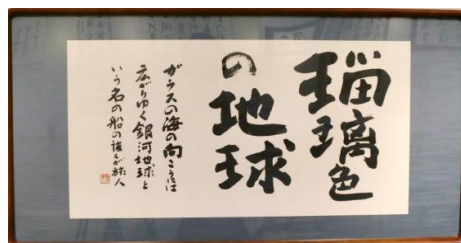 瑠璃色
の地球
ガラスの海の向こうには
広がりゆく銀河地球と
いう名の船の誰もが旅人